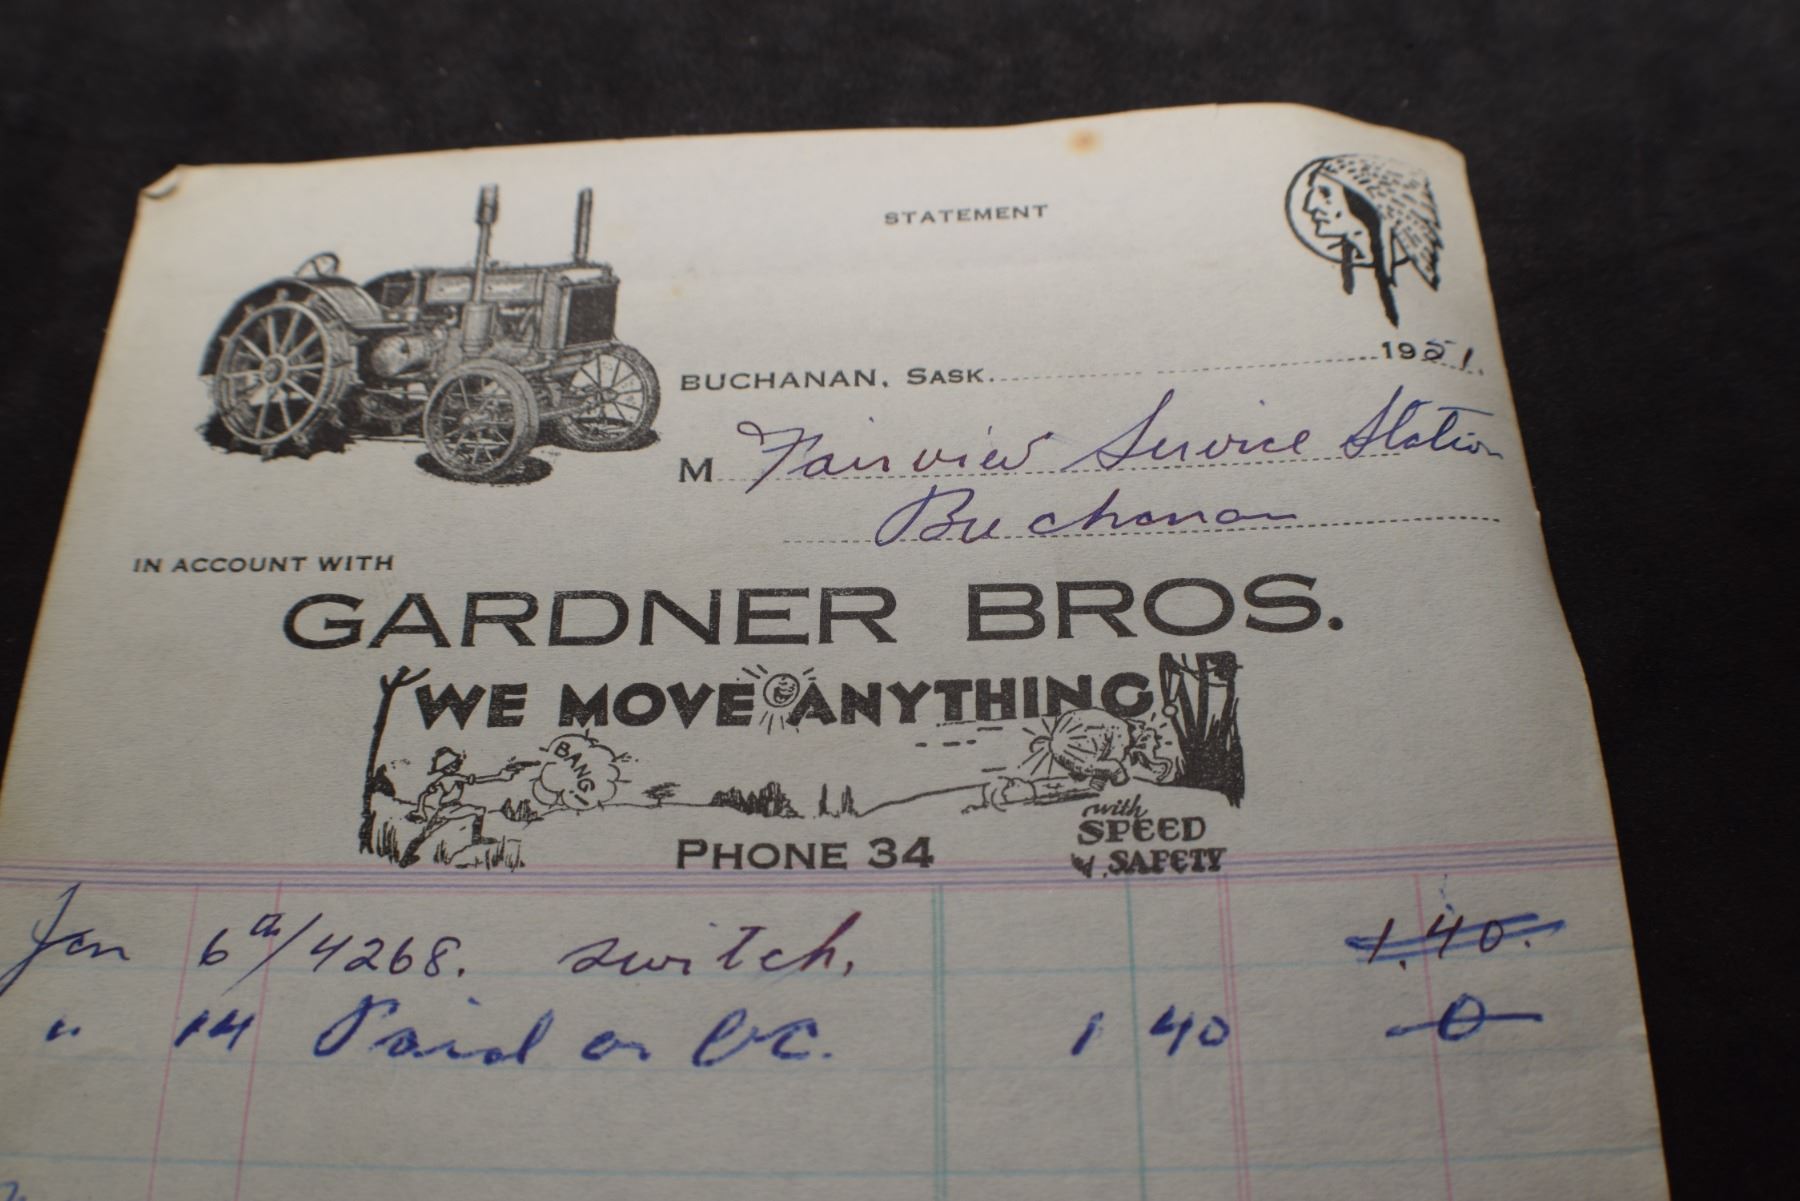 STATEMENT
BUCHANAN, SASK. 1951.
M Fairview Service Station
Buchanan
IN ACCOUNT WITH
GARDNER BROS.
WE MOVE ANYTHING
BANG!
with
SPEED
SAFETY
PHONE 34
Jan 6th/4268. switch. 1.40.
" 14 Paid on 1 40 0